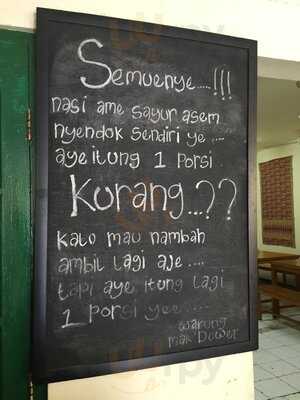 Semuenye.....!!!
nasi ame sayur asem
nyendok sendiri ye ....
aye itung 1 Porsi
Kurang...??
kalo mau nambah
ambil lagi aje ....
tapi aye itung lagi
1 porsi yee .....
warung
mak Dower